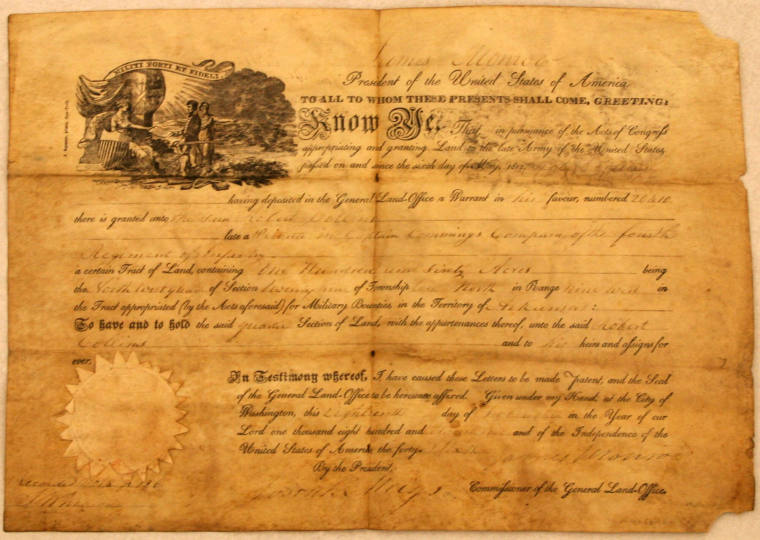 MILITI FORTI ET FIDELI
James Monroe
President of the United States of America,
TO ALL TO WHOM THESE PRESENTS SHALL COME, GREETING:
Know Ye, That, in pursuance of the Acts of Congress
appropriating and granting Land to the late Army of the United States,
passed on and since the sixth day of May, 1812,
having deposited in the General Land-Office a Warrant in his favour, numbered 20410
there is granted unto the said Robert Collins
late a in Captain Company of the fourth
Regiment of Infantry
a certain Tract of Land, containing One Hundred and Sixty Acres being
the of Section twenty nine of Township North in Range Nine West in
the Tract appropriated (by the Acts aforesaid) for Military Bounties, in the Territory of Arkansas:
To have and to hold the said quarter Section of Land, with the appurtenances thereof, unto the said Robert
Collins and to his heirs and assigns for
ever.
In Testimony whereof, I have caused these Letters to be made Patent, and the Seal
of the General Land-Office to be hereunto affixed. Given under my Hand, at the City of
Washington, this day of in the Year of our
Lord one thousand eight hundred and and of the Independence of the
United States of America the forty-
James Monroe
By the President,
Josiah Meigs Commissioner of the General Land-Office.